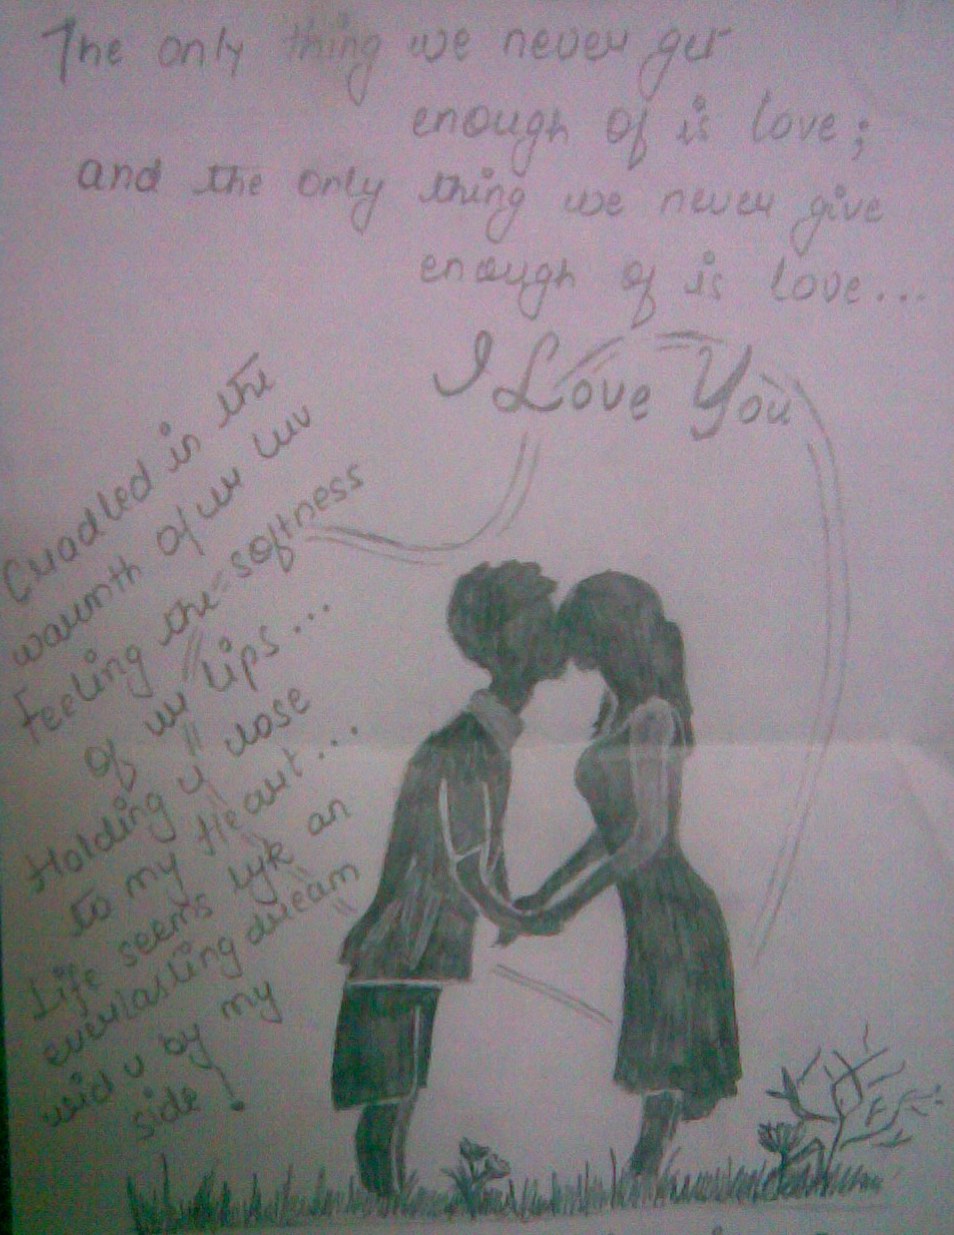 The only thing we never get
enough of is love;
and the only thing we never give
enough of is love...
I Love You
Cradled in the
warmth of ur luv
Feeling the softness
of ur lips...
Holding u close
to my Heart...
Life seems lyk an
everlasting dream
wid u by my
side!